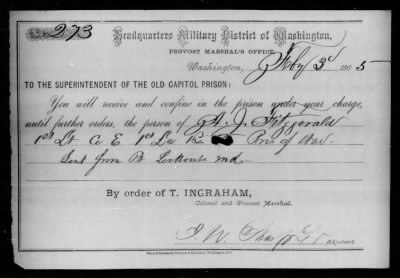 No. 273
Headquarters Military District of Washington,
PROVOST MARSHAL'S OFFICE,
Washington, Feby 3d 1865
TO THE SUPERINTENDENT OF THE OLD CAPITOL PRISON:
You will receive and confine in the prison under your charge,
until further orders, the person of J. Fitzgerald
1st Lt Co E 1st La Pris of War
Sent from Pt Lookout Md.
By order of T. INGRAHAM,
Colonel and Provost Marshal.
Adjutant.